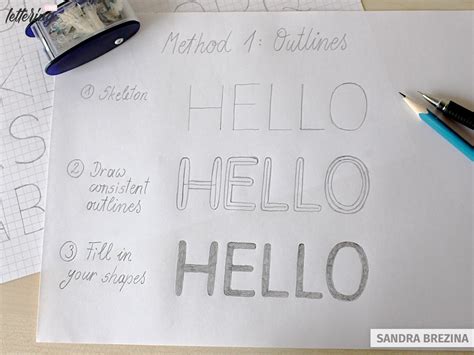 Method 1: Outlines
① Skeleton
HELLO
② Draw
consistent
outlines
HELLO
③ Fill in
your shapes
HELLO
SANDRA BREZINA